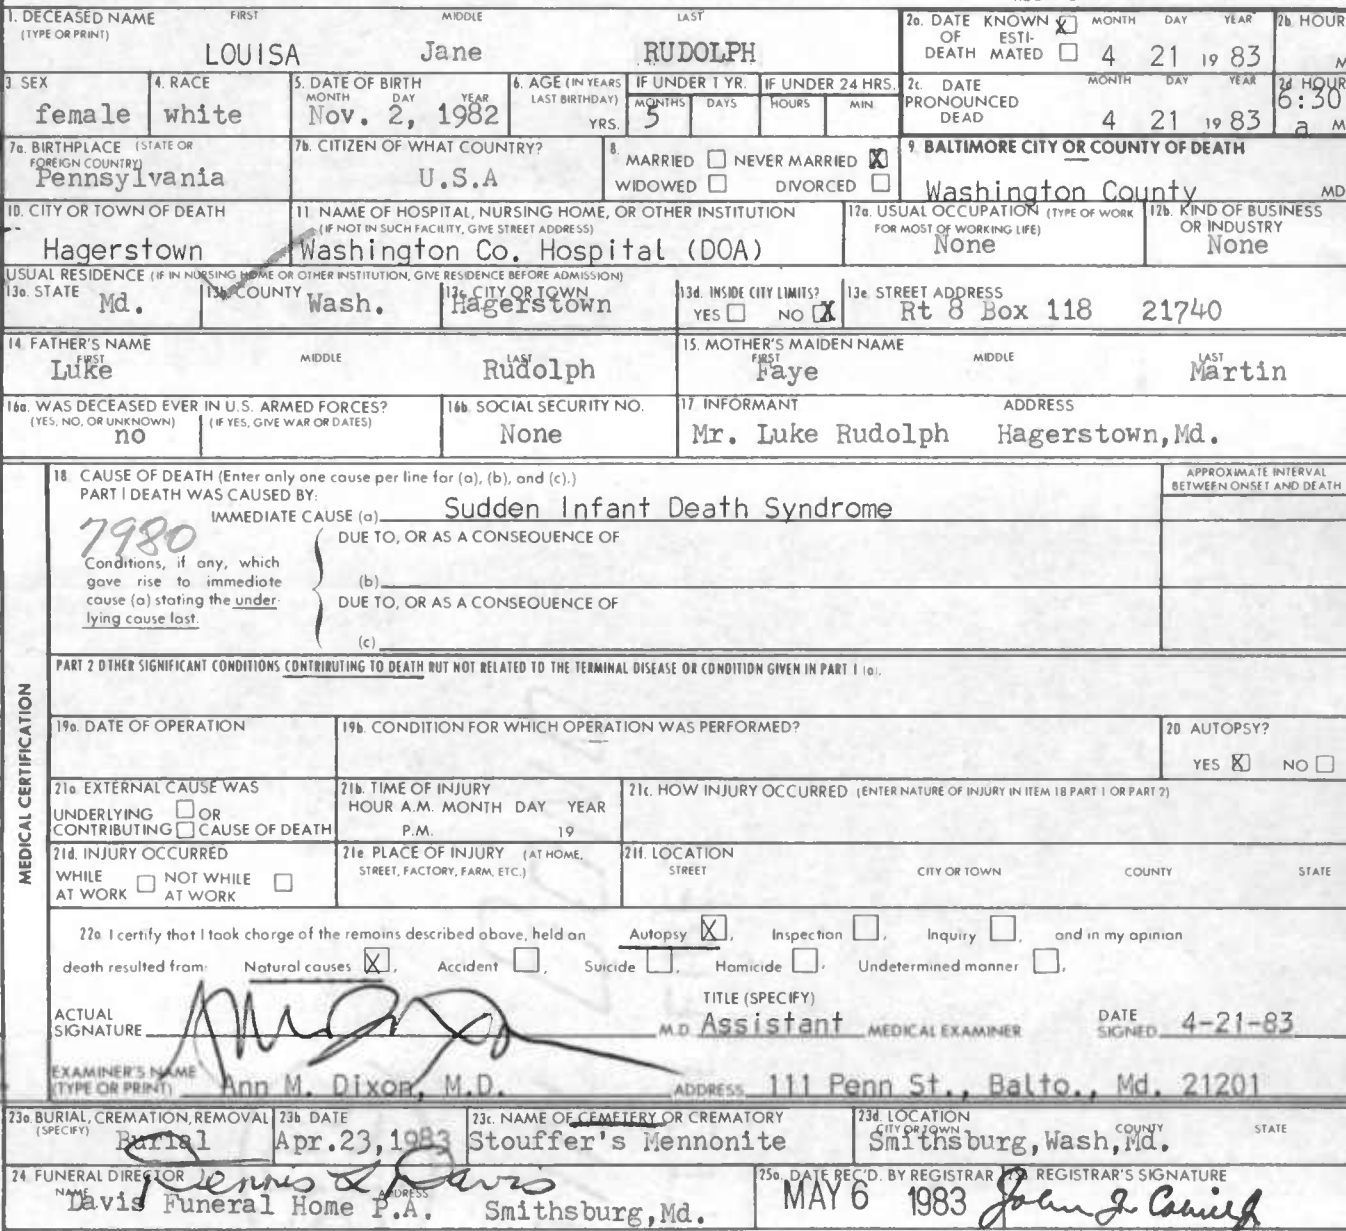 1. DECEASED NAME FIRST MIDDLE LAST
(TYPE OR PRINT)
LOUISA Jane RUDOLPH
2a. DATE KNOWN X MONTH DAY YEAR
OF ESTI-
DEATH MATED 4 21 19 83
2b. HOUR
M
3. SEX
female
4. RACE
white
5. DATE OF BIRTH
MONTH DAY YEAR
Nov. 2, 1982
6. AGE (IN YEARS
LAST BIRTHDAY)
YRS.
IF UNDER 1 YR.
MONTHS DAYS
5
IF UNDER 24 HRS.
HOURS MIN.
2c. DATE MONTH DAY YEAR
PRONOUNCED
DEAD 4 21 19 83
2d HOUR
6:30
a M
7a. BIRTHPLACE (STATE OR
FOREIGN COUNTRY)
Pennsylvania
7b. CITIZEN OF WHAT COUNTRY?
U.S.A
8.
MARRIED NEVER MARRIED X
WIDOWED DIVORCED
9. BALTIMORE CITY OR COUNTY OF DEATH
Washington County MD
10. CITY OR TOWN OF DEATH
Hagerstown
11. NAME OF HOSPITAL, NURSING HOME, OR OTHER INSTITUTION
(IF NOT IN SUCH FACILITY, GIVE STREET ADDRESS)
Washington Co. Hospital (DOA)
12a. USUAL OCCUPATION (TYPE OF WORK
FOR MOST OF WORKING LIFE)
None
12b. KIND OF BUSINESS
OR INDUSTRY
None
USUAL RESIDENCE (IF IN NURSING HOME OR OTHER INSTITUTION, GIVE RESIDENCE BEFORE ADMISSION)
13a. STATE
Md.
13b. COUNTY
Wash.
13c. CITY OR TOWN
Hagerstown
13d. INSIDE CITY LIMITS?
YES NO X
13e. STREET ADDRESS
Rt 8 Box 118 21740
14. FATHER'S NAME
FIRST MIDDLE LAST
Luke Rudolph
15. MOTHER'S MAIDEN NAME
FIRST MIDDLE LAST
Faye Martin
16a. WAS DECEASED EVER IN U.S. ARMED FORCES?
(YES, NO, OR UNKNOWN) (IF YES, GIVE WAR OR DATES)
no
16b. SOCIAL SECURITY NO.
None
17 INFORMANT ADDRESS
Mr. Luke Rudolph Hagerstown,Md.
MEDICAL CERTIFICATION
18. CAUSE OF DEATH (Enter only one cause per line for (a), (b), and (c).)
PART I DEATH WAS CAUSED BY:
IMMEDIATE CAUSE (a) Sudden Infant Death Syndrome
APPROXIMATE INTERVAL
BETWEEN ONSET AND DEATH
7980
DUE TO, OR AS A CONSEQUENCE OF
Conditions, if any, which
gave rise to immediate
cause (a) stating the under-
lying cause last.
(b)
DUE TO, OR AS A CONSEQUENCE OF
(c)
PART 2 OTHER SIGNIFICANT CONDITIONS CONTRIBUTING TO DEATH BUT NOT RELATED TO THE TERMINAL DISEASE OR CONDITION GIVEN IN PART 1 (a).
19a. DATE OF OPERATION
19b. CONDITION FOR WHICH OPERATION WAS PERFORMED?
20 AUTOPSY?
YES X NO
21a EXTERNAL CAUSE WAS
UNDERLYING OR
CONTRIBUTING CAUSE OF DEATH
21b. TIME OF INJURY
HOUR A.M. MONTH DAY YEAR
P.M. 19
21c. HOW INJURY OCCURRED (ENTER NATURE OF INJURY IN ITEM 18 PART 1 OR PART 2)
21d. INJURY OCCURRED
WHILE NOT WHILE
AT WORK AT WORK
21e PLACE OF INJURY (AT HOME,
STREET, FACTORY, FARM, ETC.)
21f. LOCATION
STREET CITY OR TOWN COUNTY STATE
22a I certify that I took charge of the remains described above, held an Autopsy X, Inspection , Inquiry , and in my opinion
death resulted from: Natural causes X, Accident , Suicide , Homicide , Undetermined manner ,
ACTUAL
SIGNATURE
TITLE (SPECIFY)
M.D. Assistant MEDICAL EXAMINER
DATE
SIGNED 4-21-83
EXAMINER'S NAME
(TYPE OR PRINT) Ann M. Dixon, M.D. ADDRESS 111 Penn St., Balto., Md. 21201
23a. BURIAL, CREMATION, REMOVAL
(SPECIFY) Burial
23b DATE
Apr.23,1983
23c. NAME OF CEMETERY OR CREMATORY
Stouffer's Mennonite
23d. LOCATION
CITY OR TOWN COUNTY STATE
Smithsburg,Wash,Md.
24 FUNERAL DIRECTOR Dennis L Davis
NAME ADDRESS
Davis Funeral Home P.A. Smithsburg,Md.
25a. DATE REC'D. BY REGISTRAR
MAY 6 1983
REGISTRAR'S SIGNATURE